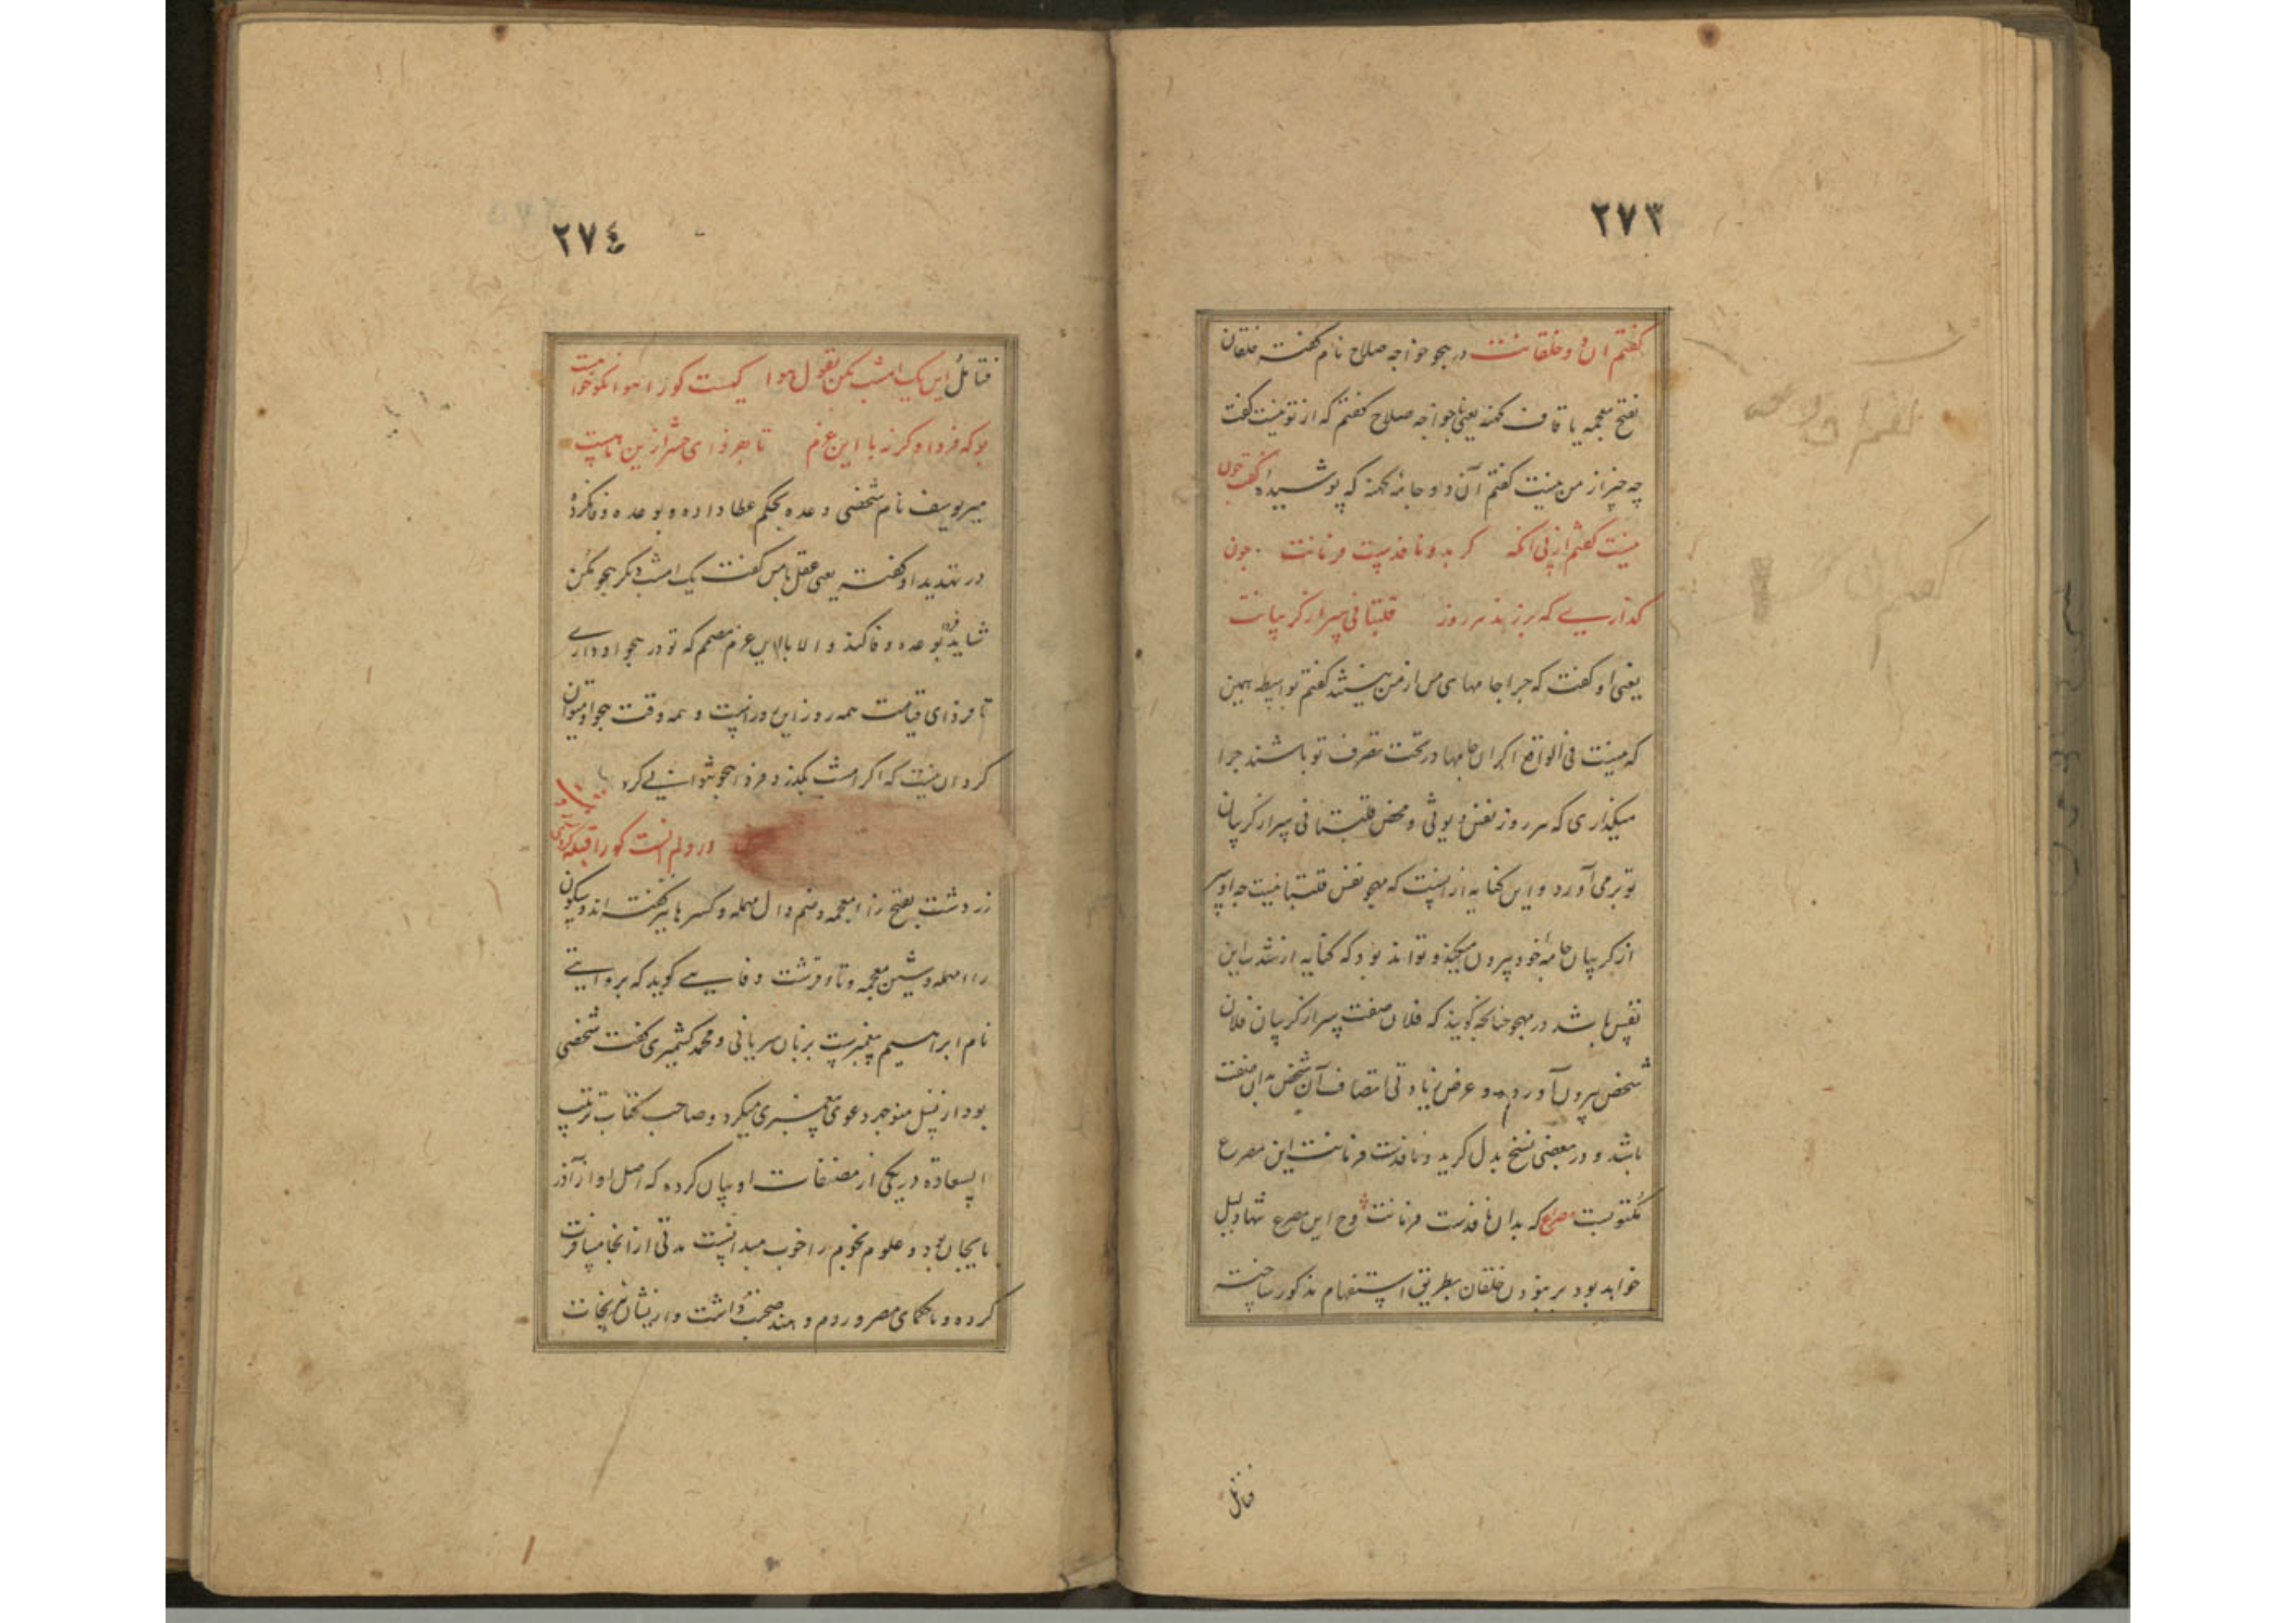 ٢٧٣
گفتم ان دو خلقانت در هجو خواجه صلاح نام گفته خلقان
بفتح معجمه یا قاف کهنه یعنی با خواجه صلاح گفتم که از تو نیست گفت
چه چیز از من نیست گفتم آن دو جامهٔ کهنه که پوشیدهٔ گفت چون
نیست گفتم از پی آنکه کر بدو نافذست فرمانت چون
کذاری که برزند هر روز قلتبانی سر از کریبانت
یعنی او گفت که چرا جامهای من از من نیستند گفتم بواسطه همین
که نیست فی الواقع اکر ان جامها در تحت تصرف تو باشند چرا
میکذاری که هر روز نفس دیوثی و محض قلتبانی سر از کریبان
تو برمی آورد و این کنایه از انست که مهجو نفس قلتبانیست چه او سر
از کریبان جامهٔ خود بیرون میکند و تواند بود که کنایه از شدت این
نفس باشد در مهجو چنانچه کویند که فلان صفت سر از کریبان فلان
شخص بیرون آورده و غرض زیادتی اتصاف آن شخص به ان صفت
باشد و در بعضی نسخ بدل کر بدو نافذست فرمانت این مصرع
مکتوبست مصرع که بدان نافذست فرمانت و ح این مصرع تنها دلیل
خواهد بود بر نبودن خلقان بطریق استفهام مذکور ساخته
فتائل
٢٧٤
فتائل این یک امشب مکن بقول هوا کیست کو را هوا نکو خواست
بو که فردا وکر نه با این عزم تا بفردای حشر ازین ماست
میر یوسف نام شخصی وعده بحکم عطا داده و بوعده وفا نکرده
در تهدید او گفته یعنی عقل با من گفت یک امشب دیکر هجو مکن
شاید فردا بوعده وفا کند و الا با این عزم مصمم که تو در هجو او داری
تا فردای قیامت همه روز این در است و همه وقت هجو او میتوان
کرد ان نیست که اکر امشب بکذرد فردا هجو نتوانی کرد
در دلم انست کو را قبله
زردشت بفتح زاء معجمه و ضم دال مهمله و کسر ها نیز گفته اند و سکون
راء مهمله و شین معجمه و تاء قرشت و فارسی کوید که بروایتی
نام ابراهیم پیغمبرست بزبان سریانی و محمد کشمیری گفت شخصی
بود از نسل منوچهر دعوی پیغمبری میکرد و صاحب کتاب ترتیب
السعادة در یکی از مصنفات او بیان کرده که اصل او از آذر
بایجان بود و علوم نجوم را خوب میدانست مدتی از انجا مسافرت
کرده و با حکمای مصر و روم و هند صحبت داشت و از یشان نیرنجات